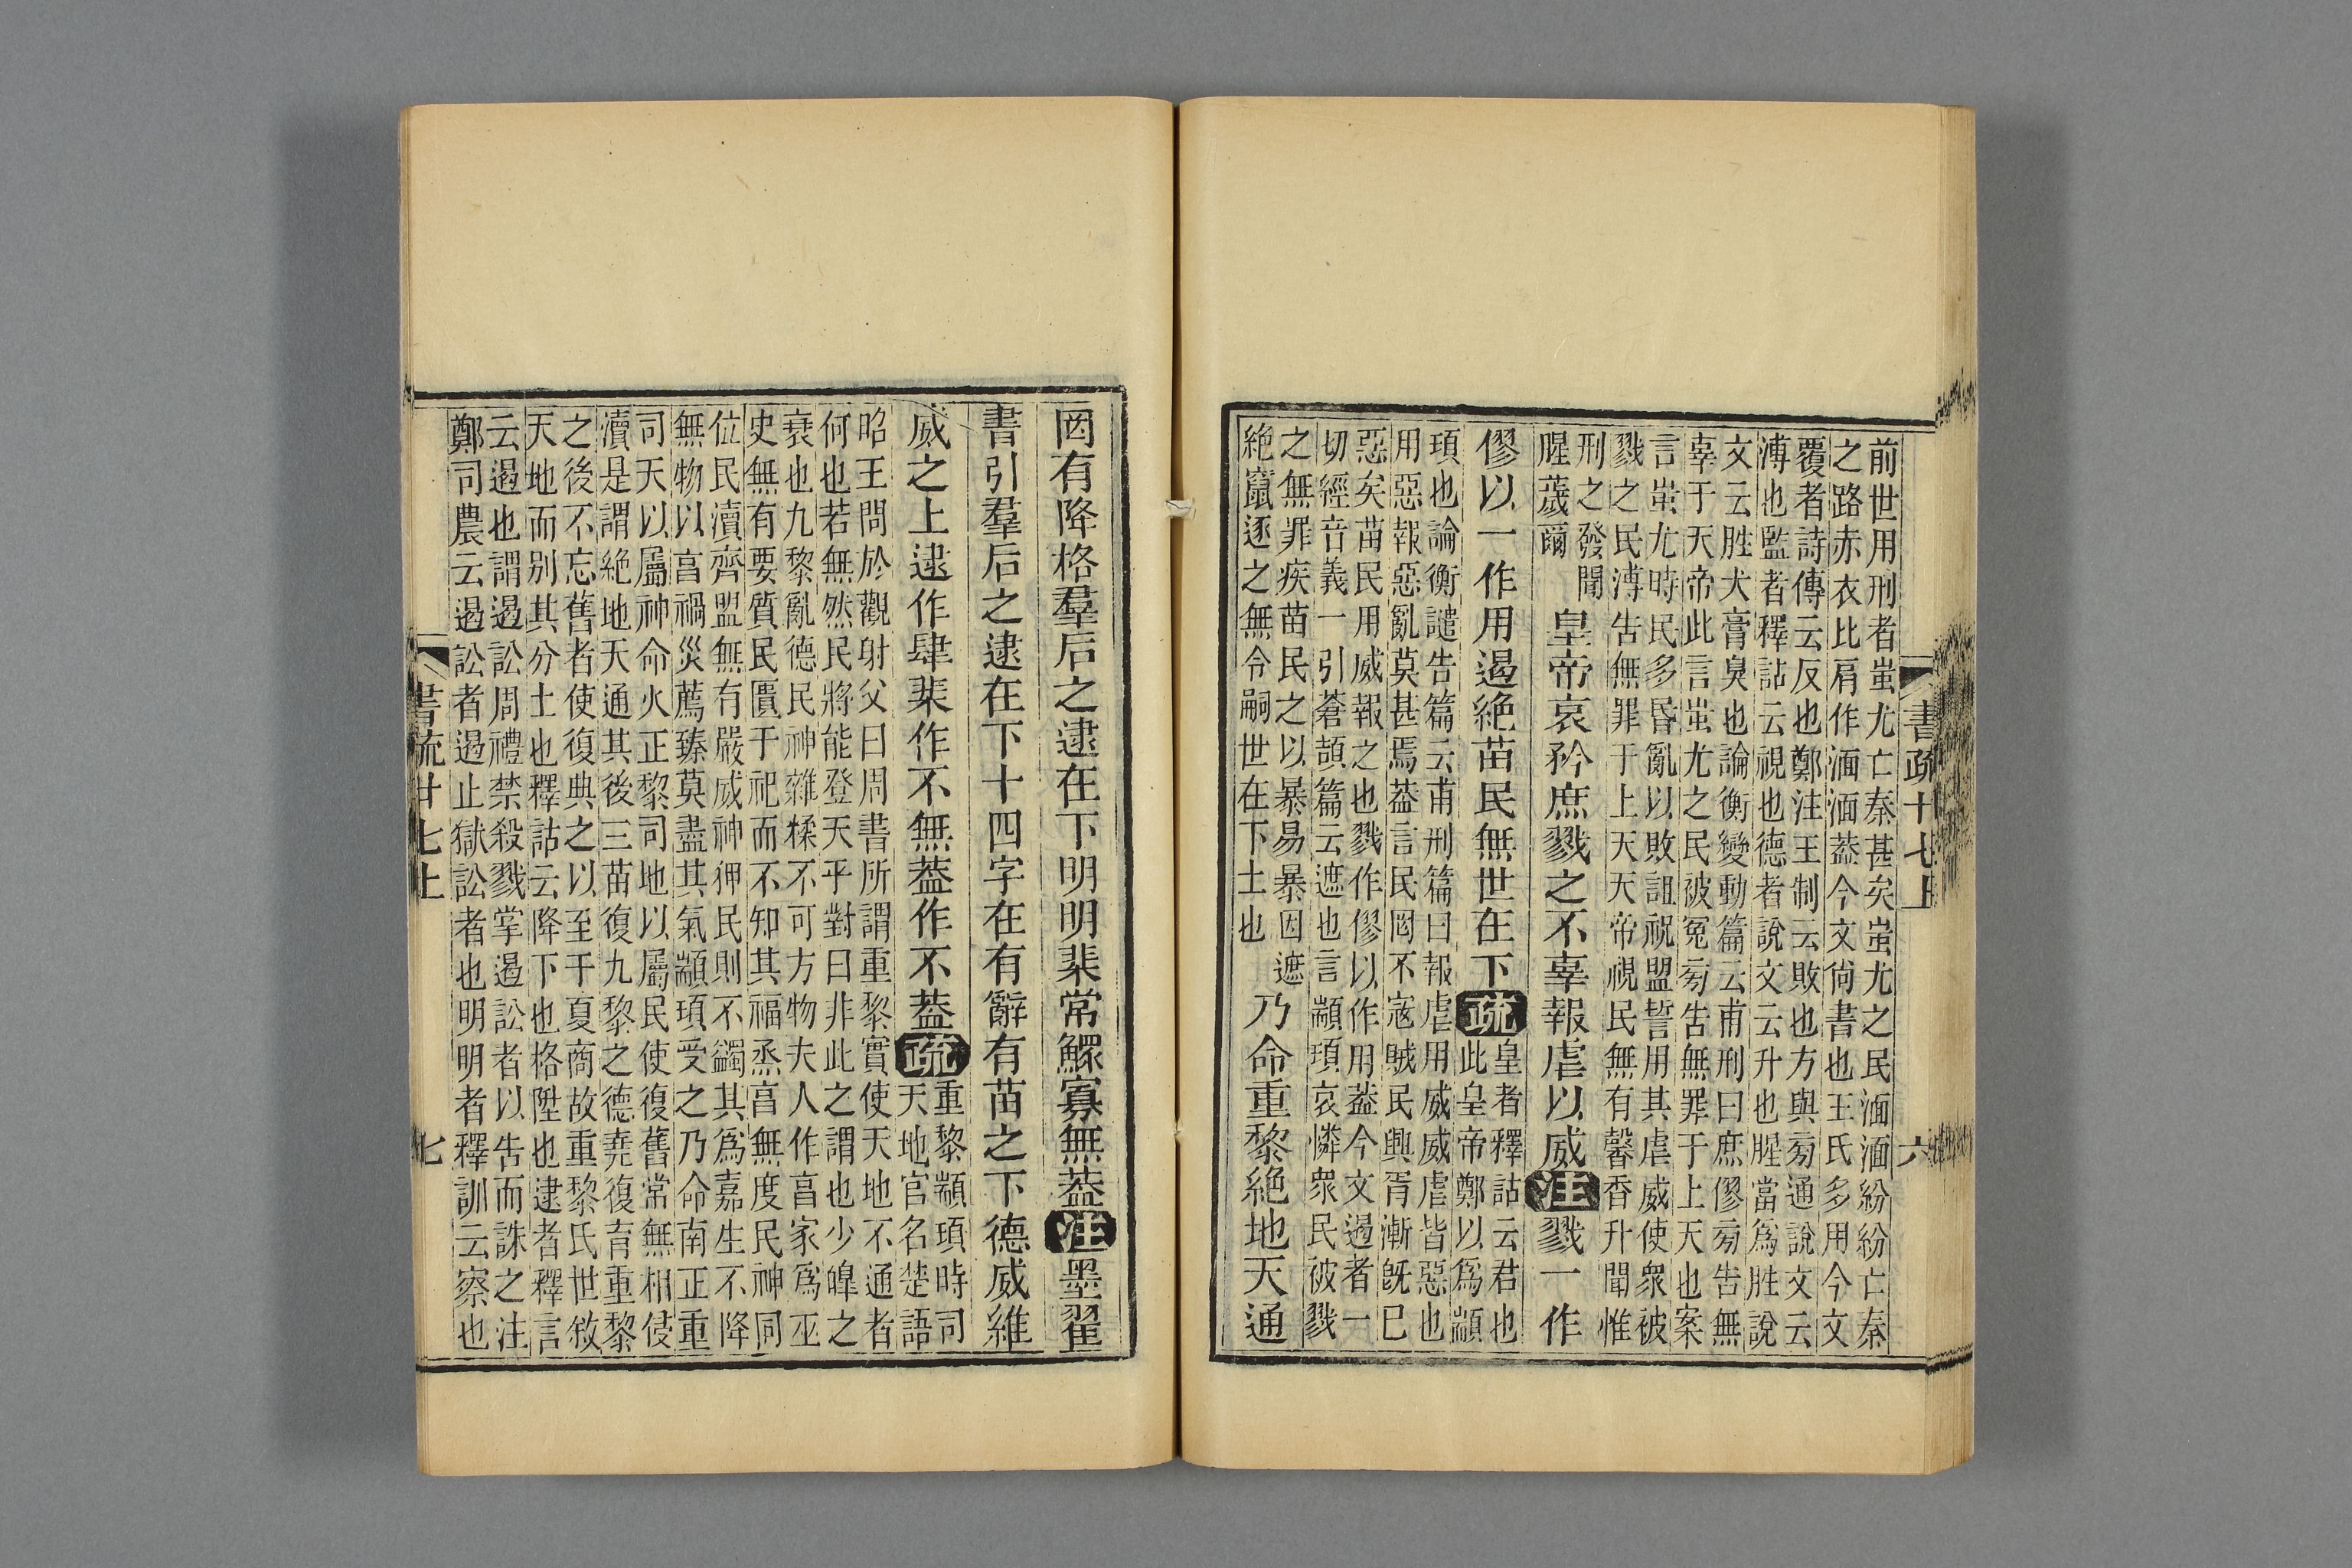 書疏廿七上 六
前世用刑者蚩尤亡秦甚矣蚩尤之民湎湎紛紛亡秦
之路赤衣比肩作湎湎葢今文尙書也王氏多用今文
覆者詩傳云反也鄭注王制云敗也方與㫄通說文云
溥也監者釋詁云視也德者說文云升也腥當爲胜說
文云胜犬膏臭也論衡變動篇云甫刑曰庶僇㫄告無
辜于天帝此言蚩尤之民被冤㫄告無罪于上天也案
言蚩尤時民多昬亂以敗詛祝盟誓用其虐威使衆被
戮之民溥告無罪于上天天帝視民無有馨香升聞惟
刑之發聞
腥薉爾
皇帝哀矜庶戮之不辜報虐以威注戮一作
僇以一作用遏絕苗民無世在下疏
皇者釋詁云君也
此皇帝鄭以爲顓
頊也論衡譴告篇云甫刑篇曰報虐用威威虐皆惡也
用惡報惡亂莫甚焉葢言民罔不寇賊民興胥漸旣巳
惡矣苗民用威報之也戮作僇以作用葢今文遏者一
切經音義一引蒼頡篇云遮也言顓頊哀憐衆民被戮
之無罪疾苗民之以暴易暴因遮
絕竄逐之無令嗣世在下土也
乃命重黎絕地天通
罔有降格羣后之逮在下明明棐常鰥寡無葢注墨翟
書引羣后之逮在下十四字在有辭有苗之下德威維
威之上逮作肆棐作不無葢作不葢疏
重黎顓頊時司
天地官名楚語
昭王問於觀射父曰周書所謂重黎實使天地不通者
何也若無然民將能登天乎對曰非此之謂也少皞之
衰也九黎亂德民神雜糅不可方物夫人作亯家爲巫
史無有要質民匱于祀而不知其福烝亯無度民神同
位民瀆齊盟無有嚴威神狎民則不蠲其爲嘉生不降
無物以亯禍災薦臻莫盡其氣顓頊受之乃命南正重
司天以屬神命火正黎司地以屬民使復舊常無相侵
瀆是謂絕地天通其後三苗復九黎之德堯復育重黎
之後不忘舊者使復典之以至于夏商故重黎氏世敘
天地而別其分土也釋詁云降下也格陞也逮者釋言
云遏也謂遏訟周禮禁殺戮掌遏訟者以告而誅之注
鄭司農云遏訟者遏止獄訟者也明明者釋訓云察也
書疏廿七上 七